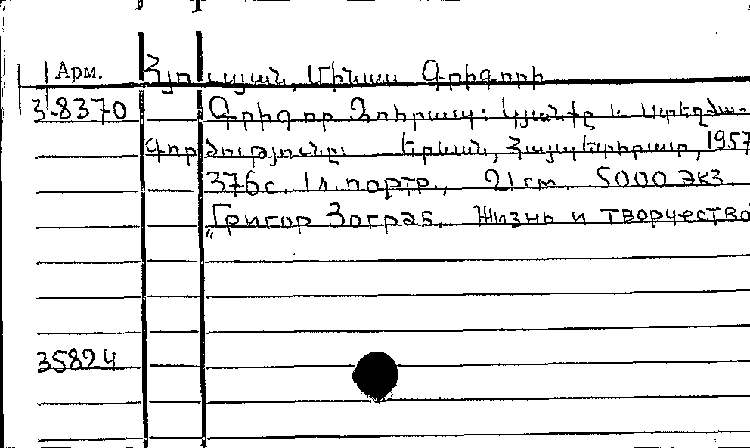 Арм. Հյուսյան, Մինաս Գրիգորի
3-8370 Գրիգոր Զոհրապ: Կյանքը և ստեղծա-
գործությունը: Երևան, Հայպետհրատ, 1957
376с. 1л.портр., 21см. 5000 экз.
"Григор Зограб. Жизнь и творчество
35824